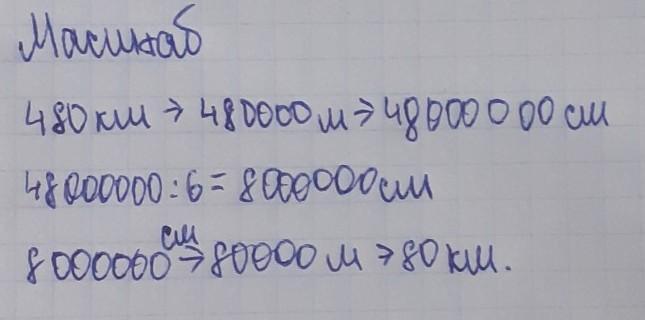 Масштаб
480 км → 480000 м → 48000000 см
48000000 : 6 = 8000000 см
8000000 см → 80000 м → 80 км.